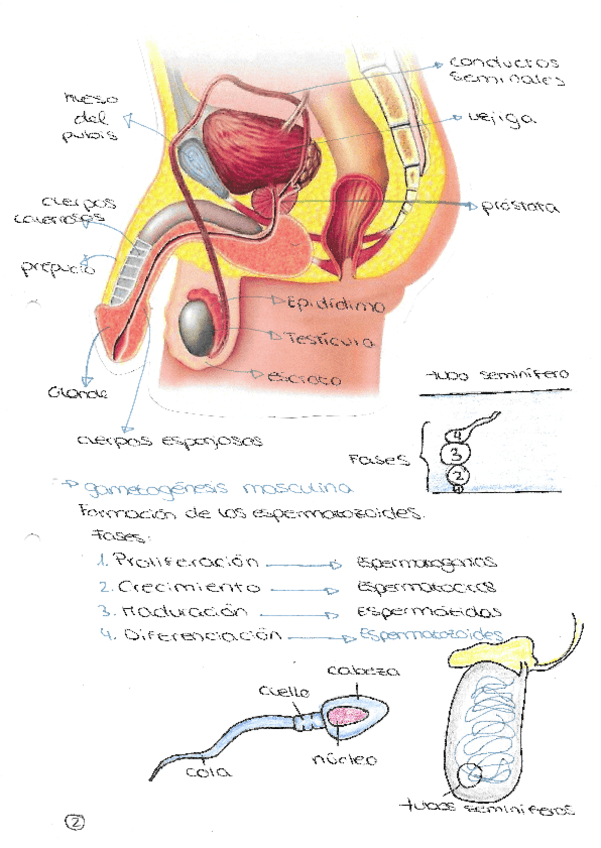 conductos
seminales
hueso
del
pubis
vejiga
cuerpos
cavernosos
próstata
prepucio
Epidídimo
Testículo
Escroto
Glande
cuerpos esponjosos
tubo seminífero
Fases
4
3
2
1
gametogénesis masculina
Formación de los espermatozoides.
Fases:
1. Proliferación → Espermatogonias
2. Crecimiento → Espermatocitos
3. Maduración → Espermátidas
4. Diferenciación → Espermatozoides
cabeza
cuello
núcleo
cola
tubos seminíferos
2